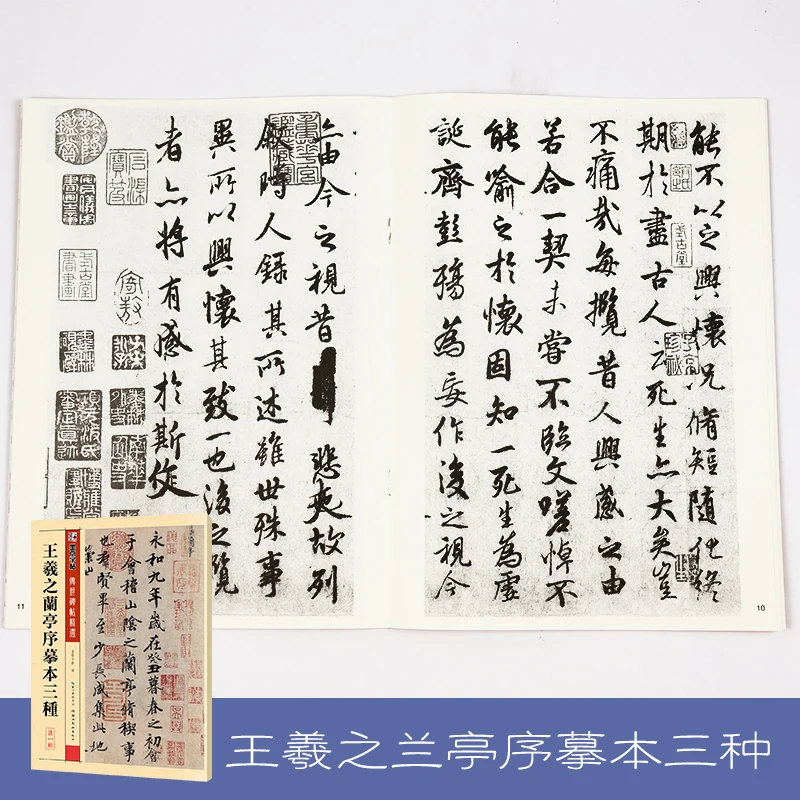 能不以之興懷況脩短隨化終
期於盡古人云死生亦大矣豈
不痛哉每攬昔人興感之由
若合一契未嘗不臨文嗟悼不
能喻之於懷固知一死生為虛
誕齊彭殤為妄作後之視今
10
亦由今之視昔悲夫故列
敘時人錄其所述雖世殊事
異所以興懷其致一也後之覽
者亦將有感於斯文
11
式古堂
式古堂書畫
傳世碑帖精選
王羲之蘭亭序摹本三種
第一輯
永和九年歲在癸丑暮春之初會
于會稽山陰之蘭亭脩稧事
也羣賢畢至少長咸集此地
崇山
王羲之兰亭序摹本三种